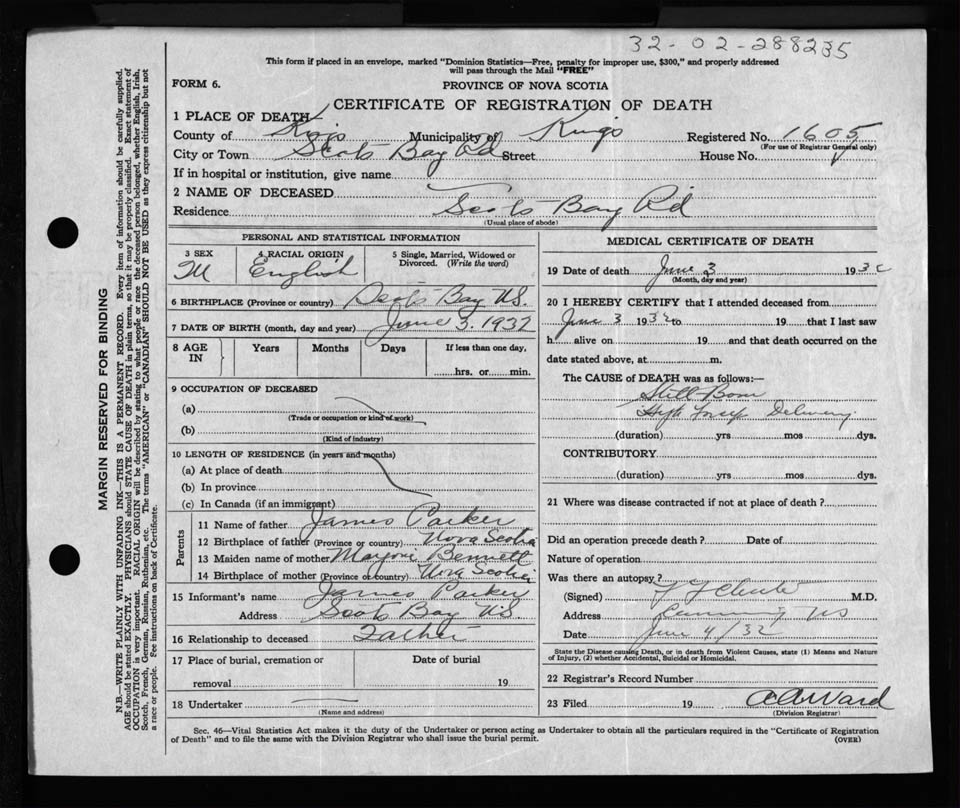 32-02-288235
This form if placed in an envelope, marked "Dominion Statistics—Free, penalty for improper use, $300," and properly addressed
will pass through the Mail "FREE"
FORM 6.
PROVINCE OF NOVA SCOTIA
CERTIFICATE OF REGISTRATION OF DEATH
1 PLACE OF DEATH
County of Kings Municipality of Kings Registered No. 1605
(For use of Registrar General only)
City or Town Scots Bay Rd Street House No.
If in hospital or institution, give name
2 NAME OF DECEASED
Residence Scots Bay Rd
(Usual place of abode)
PERSONAL AND STATISTICAL INFORMATION
3 SEX M
4 RACIAL ORIGIN English
5 Single, Married, Widowed or Divorced. (Write the word)
6 BIRTHPLACE (Province or country) Scots Bay N.S.
7 DATE OF BIRTH (month, day and year) June 3. 1932
8 AGE IN Years Months Days If less than one day, hrs. or min.
9 OCCUPATION OF DECEASED
(a)
(Trade or occupation or kind of work)
(b)
(Kind of industry)
10 LENGTH OF RESIDENCE (in years and months)
(a) At place of death
(b) In province
(c) In Canada (if an immigrant)
Parents
11 Name of father James Parker
12 Birthplace of father (Province or country) Nova Scotia
13 Maiden name of mother Marjorie Bennett
14 Birthplace of mother (Province or country) Nova Scotia
15 Informant's name James Parker
Address Scots Bay N.S.
16 Relationship to deceased Father
17 Place of burial, cremation or Date of burial
removal 19
18 Undertaker
(Name and address)
MEDICAL CERTIFICATE OF DEATH
19 Date of death June 3 1932
(Month, day and year)
20 I HEREBY CERTIFY that I attended deceased from
June 3 1932 to 19 that I last saw
h alive on 19 and that death occurred on the
date stated above, at m.
The CAUSE of DEATH was as follows:—
Still Born
High Forcep Delivery.
(duration) yrs mos dys.
CONTRIBUTORY
(duration) yrs mos dys.
21 Where was disease contracted if not at place of death?
Did an operation precede death? Date of
Nature of operation
Was there an autopsy?
(Signed) Chute M.D.
Address Canning NS
Date June 4/32
State the Disease causing Death, or in death from Violent Causes, state (1) Means and Nature
of Injury, (2) whether Accidental, Suicidal or Homicidal.
22 Registrar's Record Number
23 Filed 19 Ward
(Division Registrar)
Sec. 46—Vital Statistics Act makes it the duty of the Undertaker or person acting as Undertaker to obtain all the particulars required in the "Certificate of Registration
of Death" and to file the same with the Division Registrar who shall issue the burial permit. (OVER)
MARGIN RESERVED FOR BINDING
N.B.—WRITE PLAINLY WITH UNFADING INK—THIS IS A PERMANENT RECORD. Every item of information should be carefully supplied.
AGE should be stated EXACTLY. PHYSICIANS should STATE CAUSE OF DEATH in plain terms, so that it may be properly classified. Exact statement of
OCCUPATION is very important. RACIAL ORIGIN will be described by stating to what people or race the deceased person belonged, whether English, Irish,
Scotch, French, German, Russian, Ruthenian, etc. The terms "AMERICAN" or "CANADIAN" SHOULD NOT BE USED as they express citizenship but not
a race or people. See instructions on back of Certificate.